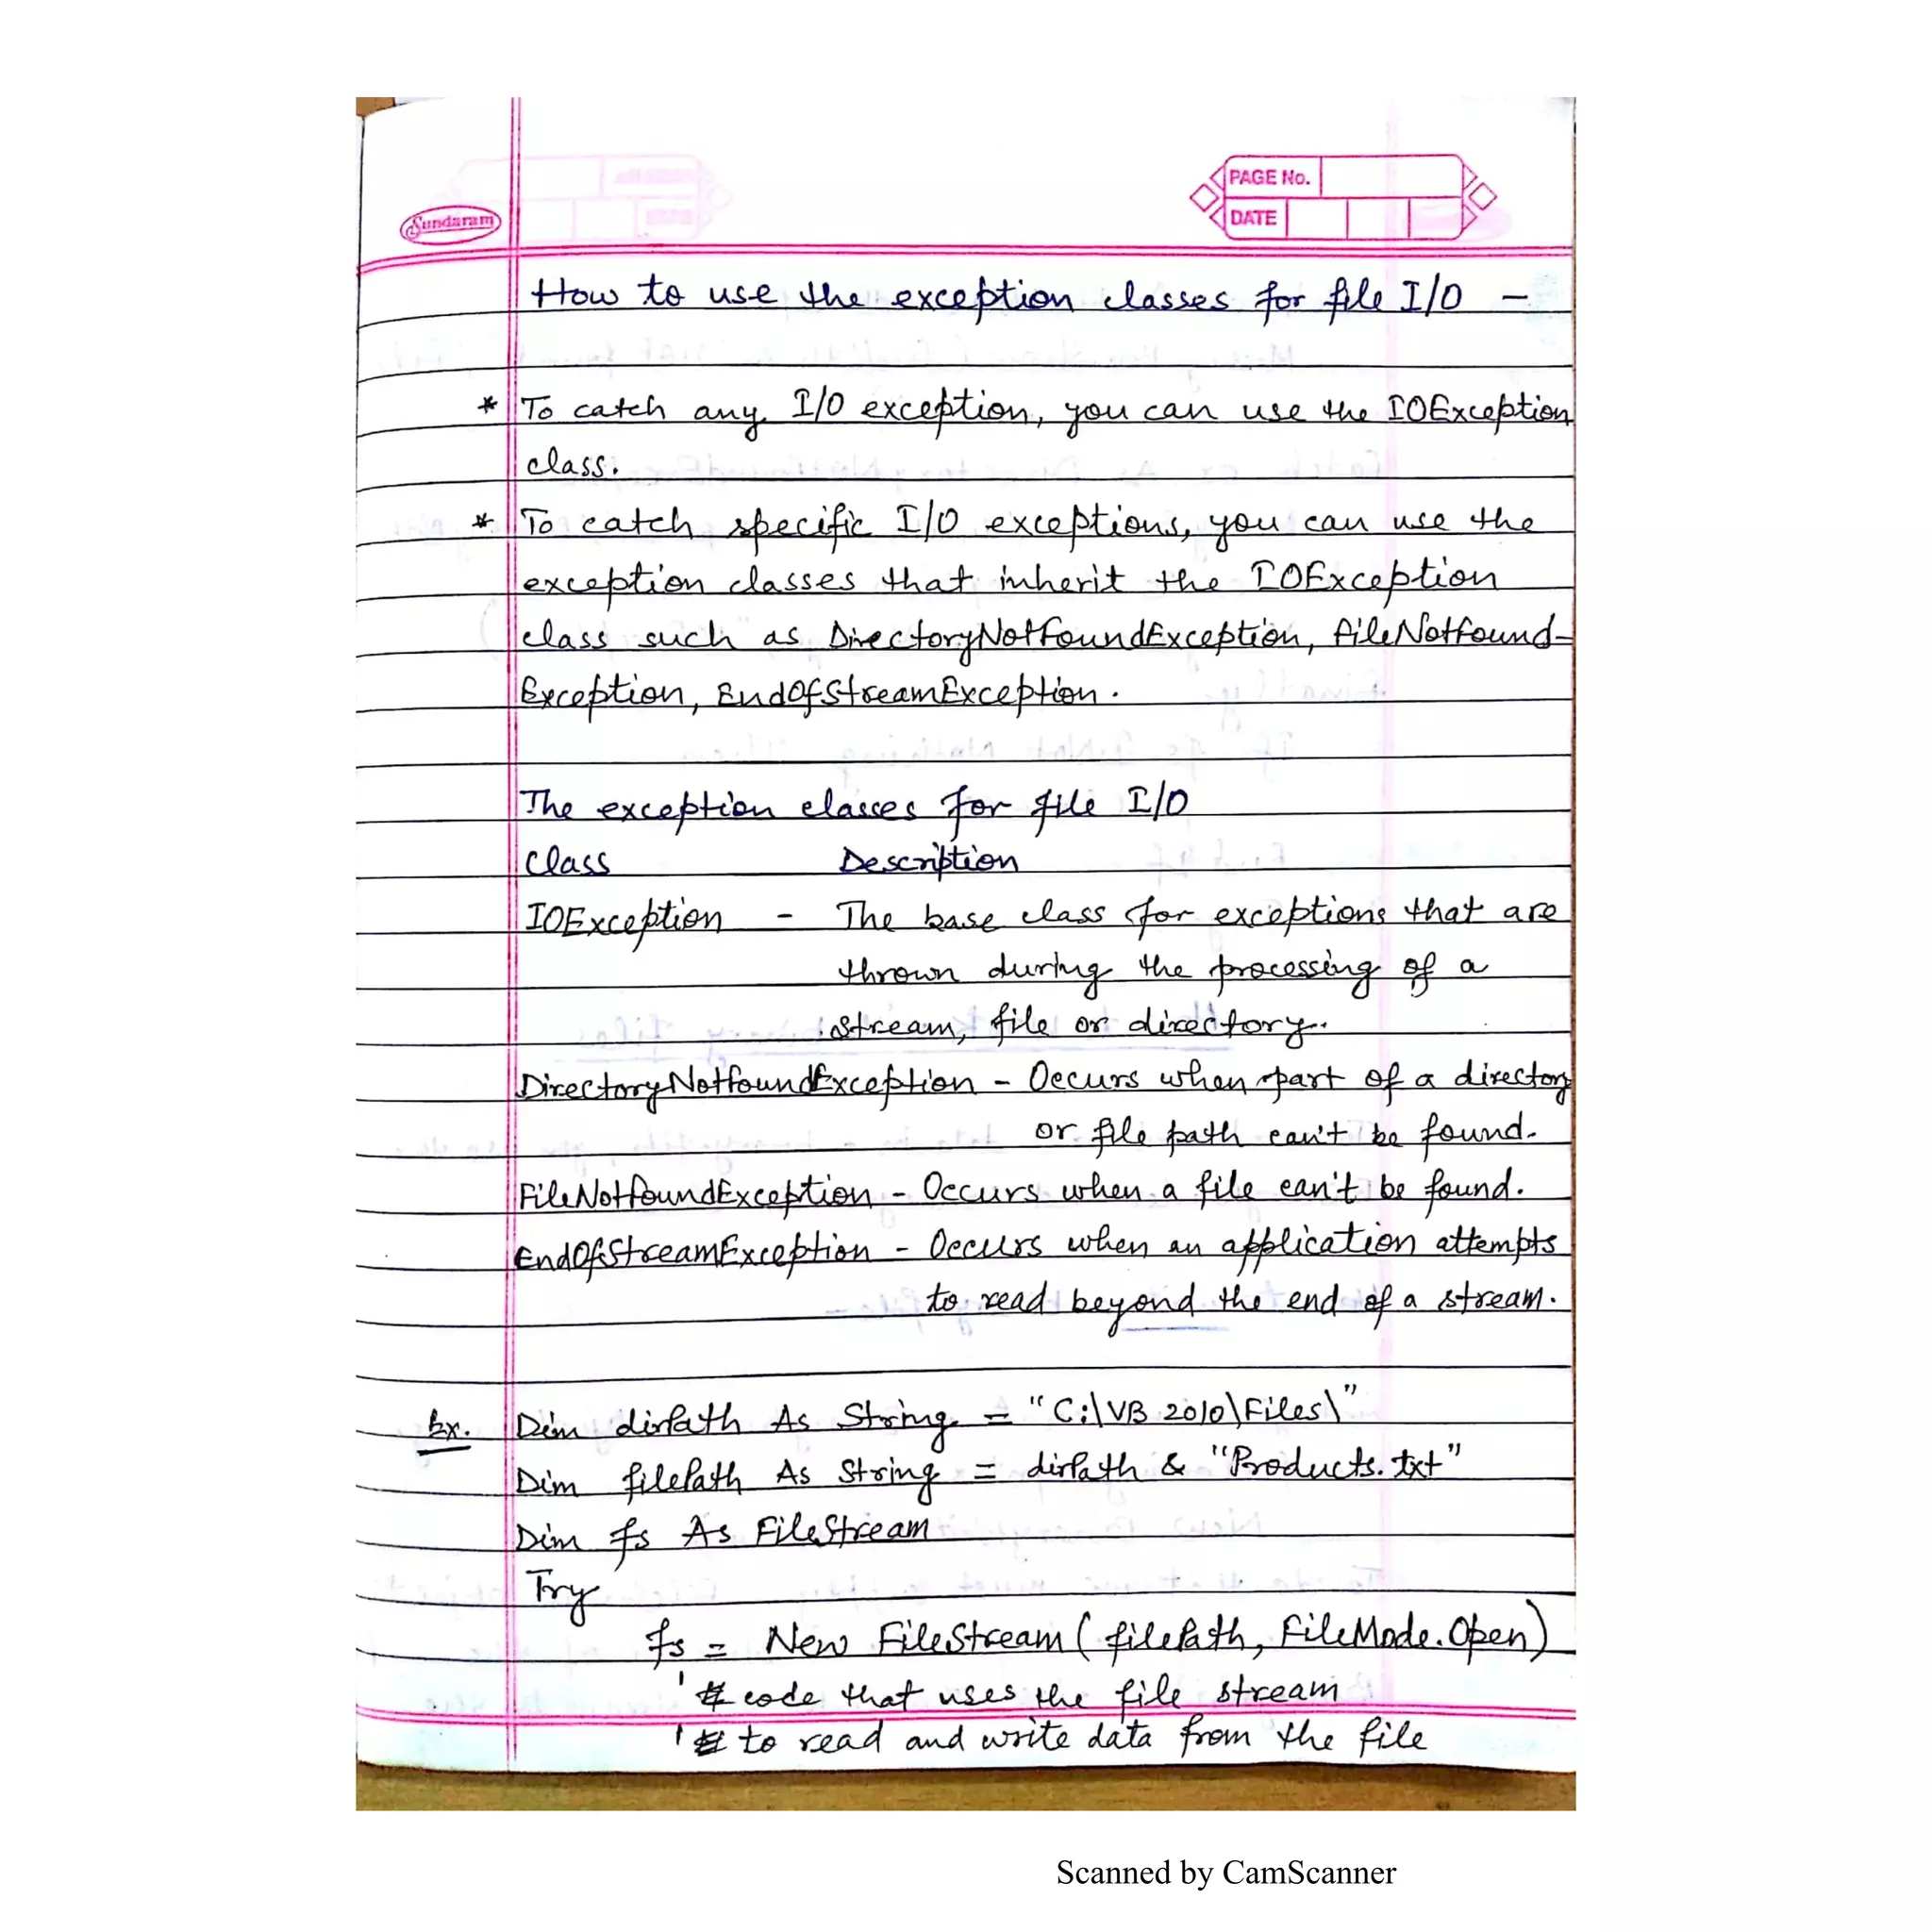 Sundaram
PAGE No.
DATE
How to use the exception classes for file I/O -
* To catch any I/O exception, you can use the IOException
class.
* To catch specific I/O exceptions, you can use the
exception classes that inherit the IOException
class such as DirectoryNotFoundException, FileNotFound-
Exception, EndOfStreamException.
The exception classes for file I/O
Class Description
IOException - The base class for exceptions that are
thrown during the processing of a
stream, file or directory.
DirectoryNotFoundException - Occurs when part of a directory
or file path can't be found.
FileNotFoundException - Occurs when a file can't be found.
EndOfStreamException - Occurs when an application attempts
to read beyond the end of a stream.
Ex. Dim dirPath As String = "C:\VB 2010\Files\"
Dim filePath As String = dirPath & "Products.txt"
Dim fs As FileStream
Try
fs = New FileStream(filePath, FileMode.Open)
' code that uses the file stream
' to read and write data from the file
Scanned by CamScanner